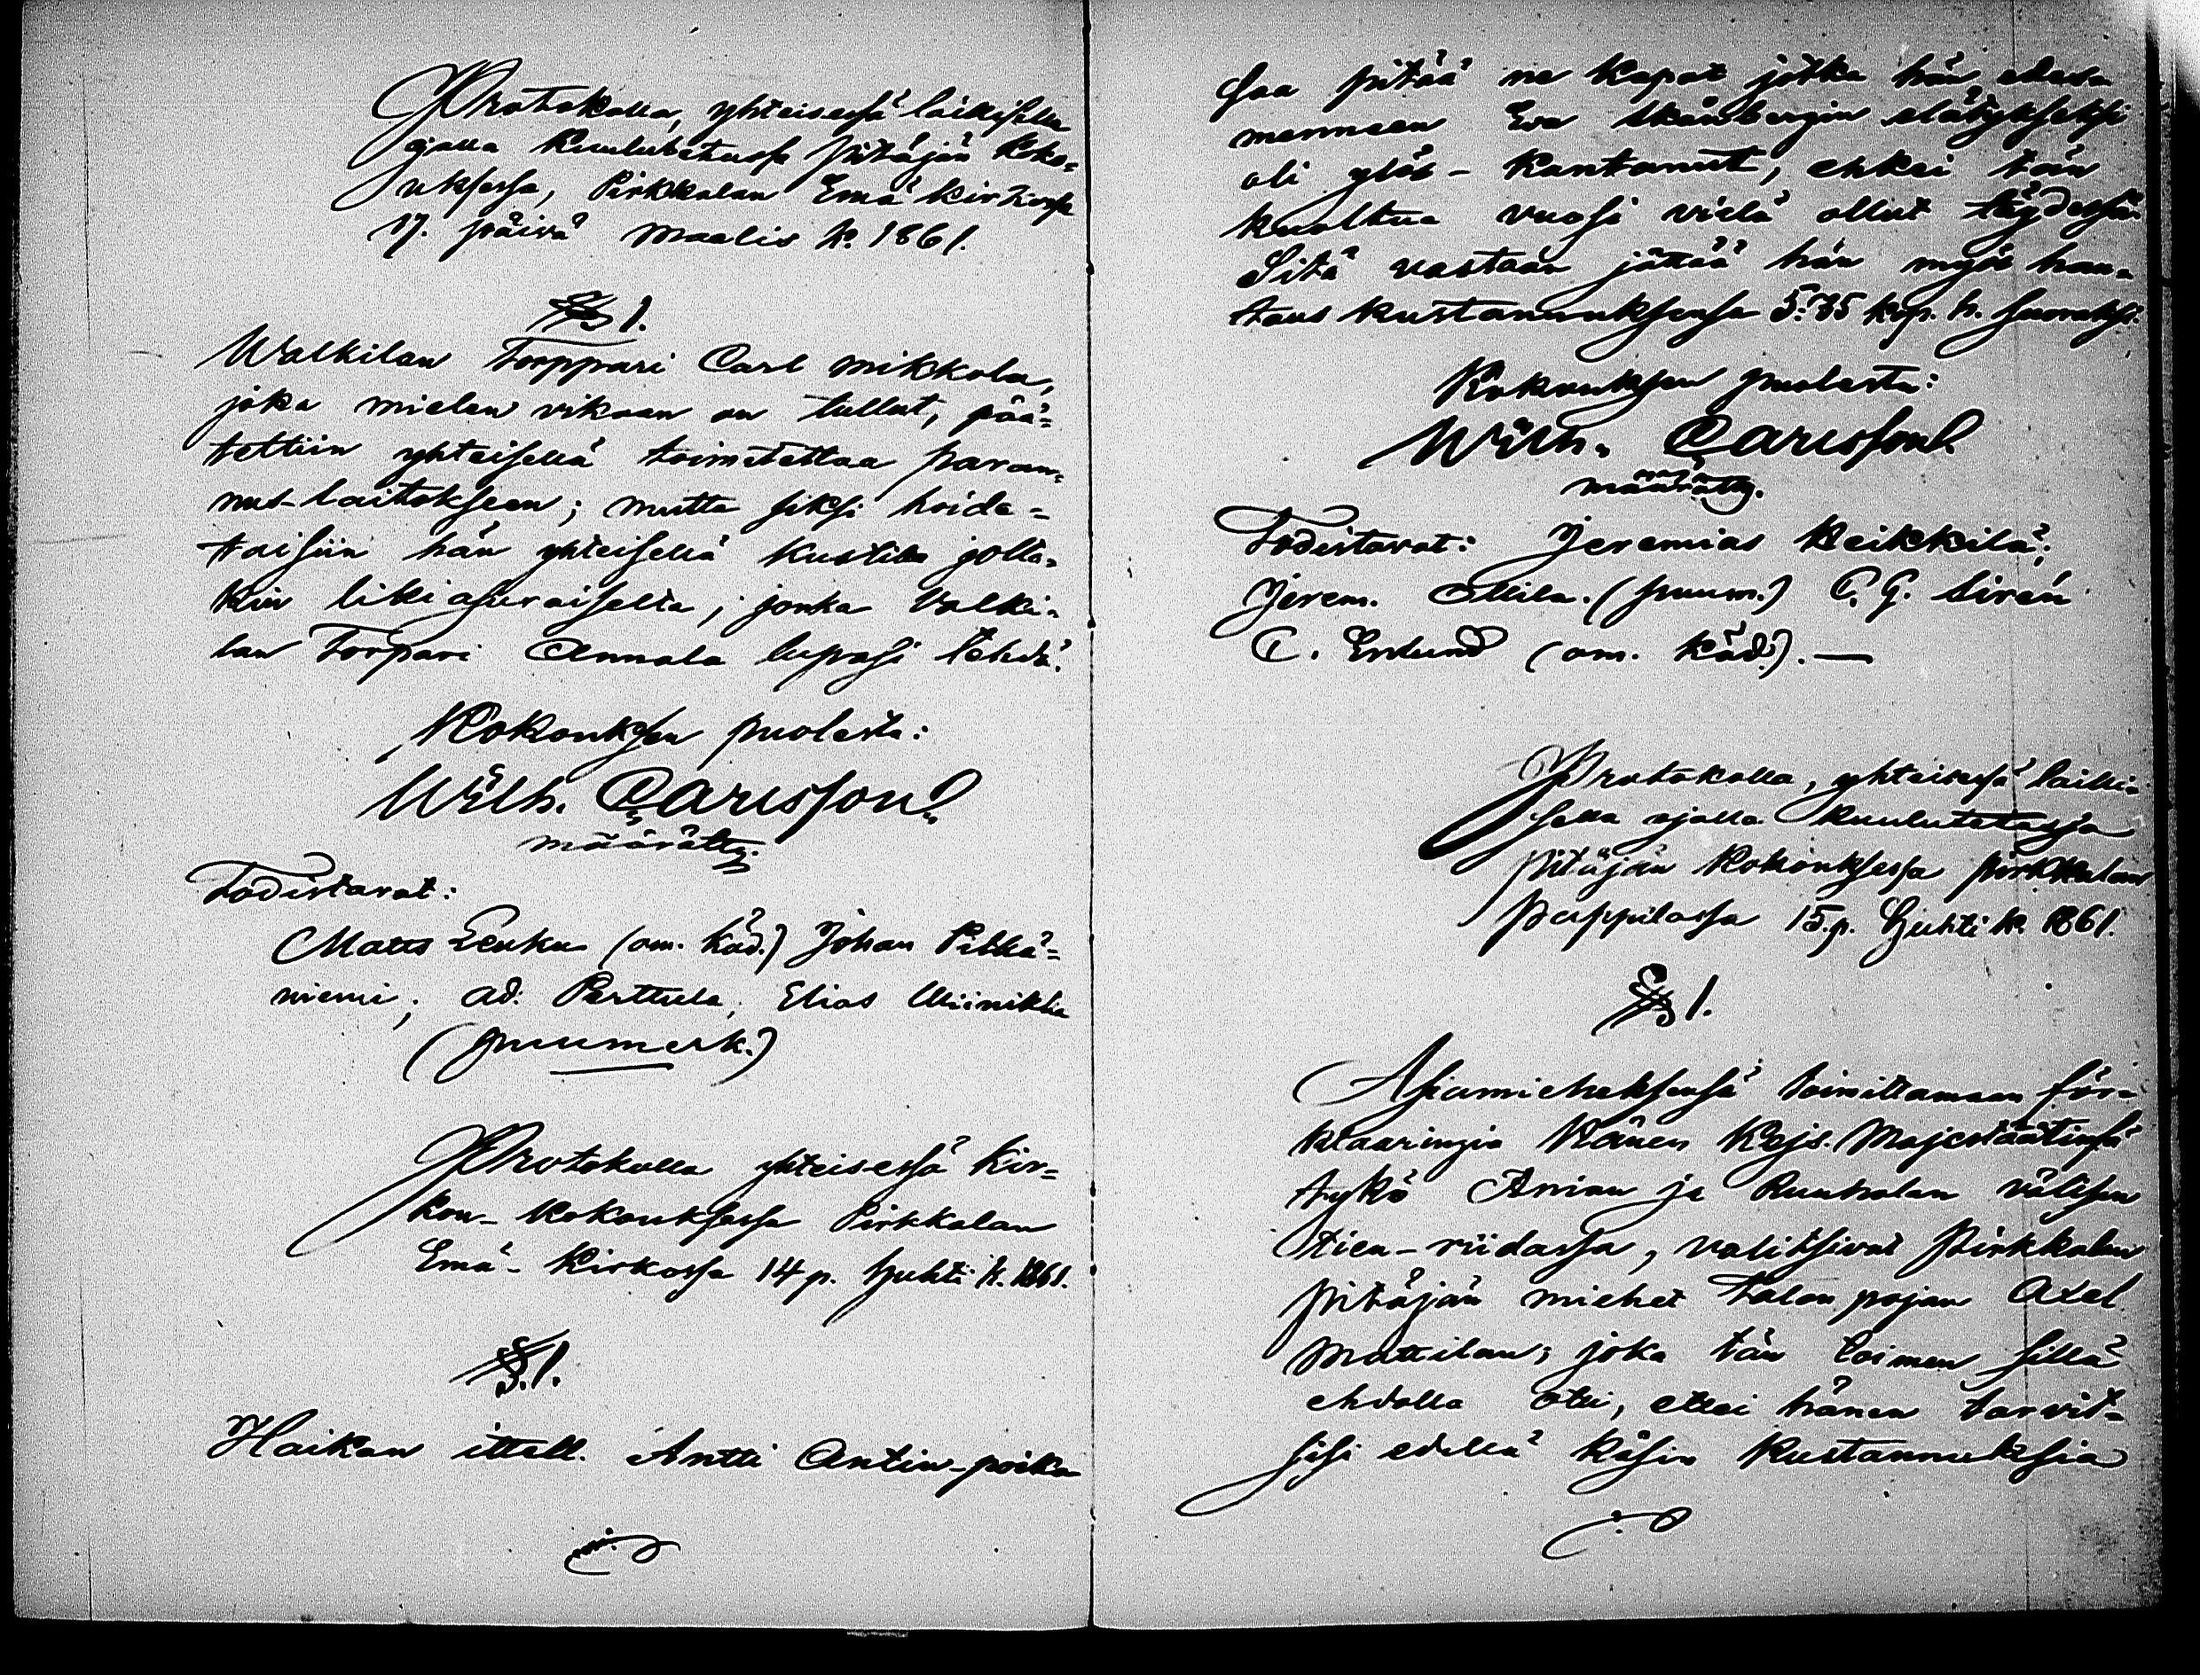 Protokolla, yhteisessä laillisella
ajalla kuulutetussa Pitäjän koko-
uksessa, Pirkkalan Emä kirkossa
17. päivä Maalis k. 1861.
§ 1.
Walkilan Torppari Carl Mikkola,
joka mielen vikaan on tullut, pää-
tettiin yhteisellä toimitettaa paran-
nus-laitokseen; mutta siksi hoide-
taisiin hän yhteisellä kustilla jolla-
kin likiasuvaisella, jonka Valki-
lan Torpari Annala lupasi tehdä.
Kokouksen puolesta:
Wilh. Carlsson
määrätty.
Todistavat:
Matts Leuku (om. käd.) Johan Pikkä-
niemi, Ad. Perttula, Elias Wiinikka
(puumerk.)
Protokolla yhteisessä Kir-
kon-kokouksessa Pirkkalan
Emä-Kirkossa 14 p. Huhti k. 1861.
§.1.
Haikan ittell. Antti Antin-poika
saa pitää ne kapat jotka hän edesm
menneen Eva Skånbergin elätykseksi
oli ylös-kantanut, ehkei tän
kuoltua vuosi vielä ollut täydessä.
Sitä vastaan jättää hän myös hau-
taus kustannuksensa 5:75 kop. h. suoraksi.
Kokouksen puolesta:
Wilh. Carlsson.
määrätty.
Todistavat: Jeremias Keikkilä,
Jerem. Ollila. (puum.) C. G. Sirén
C. Enlund (om. käd.). —
Protokolla, yhteisessä lailli-
sella ajalla kuulutetussa
Pitäjän Kokouksessa Pirkkalan
Pappilassa 15.p. Huhti k. 1861.
§ 1.
Asiamieheksensä toimittamaan för-
klaaringia Hänen Kejs. Majestäätinsä
tykö Anian ja Ruuholan välisen
tien-riidassa, valitsivat Pirkkalan
pitäjän miehet Talon pojan Axel
Mattilan; joka tän toimen sillä
ehdolla otti, ettei hänen tarvit-
sisi edellä käsin kustannuksia